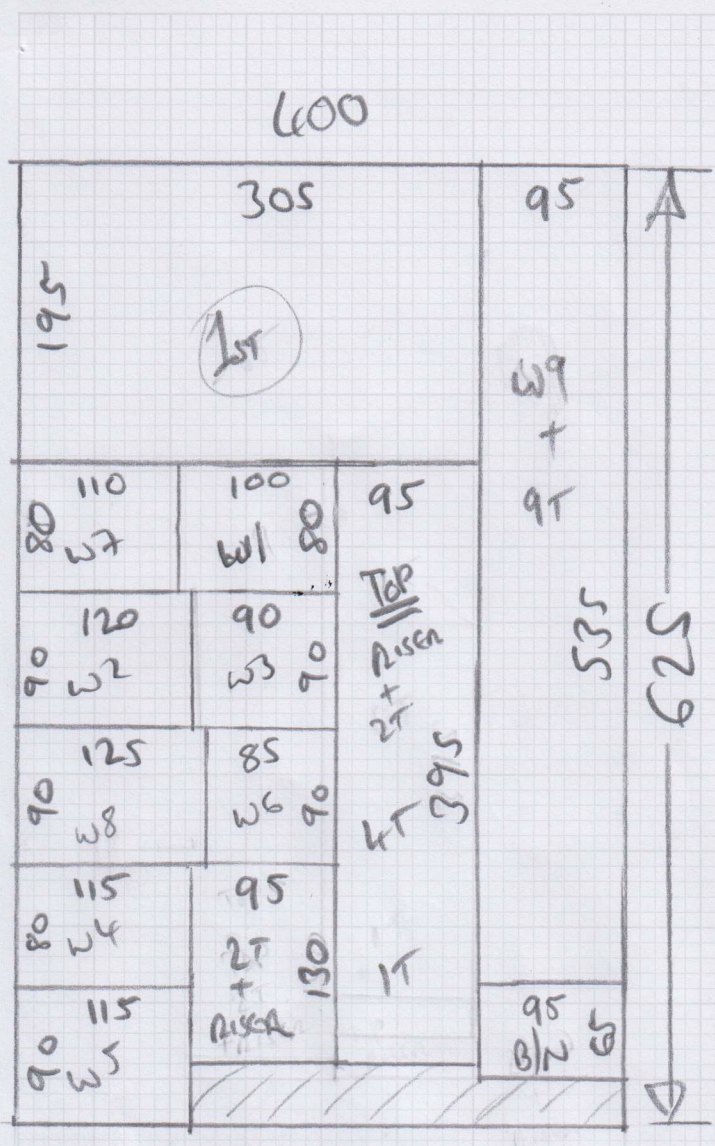 400
305
195
1ST
95
W9
+
9T
535
625
110
80
W7
100
W1
80
95
TOP
RISER
+
2T
395
4T
1T
120
90
W2
90
W3
90
125
90
W8
85
W6
90
115
80
W4
95
2T
+
RISER
130
115
90
W5
95
B/N
65